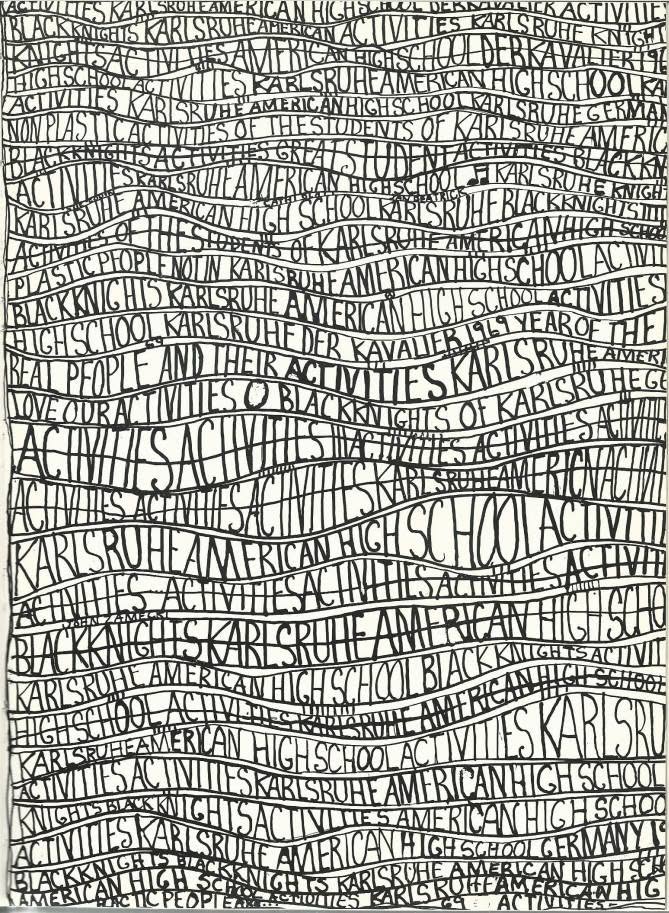 ACTIVITIES KARLSRUHE AMERICAN HIGH SCHOOL DER KAVALIER ACTIVITIE
BLACK KNIGHTS KARLSRUHE AMERICAN ACTIVITIES KARLSRUHE KNIGHT
KNIGHTS ACTIVITIES AMERICAN HIGH SCHOOL DER KAVALIER 196
HIGH SCHOOL ACTIVITIES KARLSRUHE AMERICAN HIGH SCHOOL KA
ACTIVITIES KARLSRUHE AMERICAN HIGH SCHOOL KARLSRUHE GERMA
NON PLASTIC ACTIVITIES OF THE STUDENTS OF KARLSRUHE AMERIC
BLACK KNIGHTS ACTIVITIES GREAT STUDENT ACTIVITIES BLACK KN
ACTIVITIES KARLSRUHE AMERICAN HIGH SCHOOL KARLSRUHE KNIGH
KARLSRUHE AMERICAN HIGH SCHOOL KARLSRUHE BLACK KNIGHTS
ACTIVITIES OF THE STUDENTS OF KARLSRUHE AMERICAN HIGH SCHOO
PLASTIC PEOPLE NOT IN KARLSRUHE AMERICAN HIGH SCHOOL ACTIVITI
BLACK KNIGHTS KARLSRUHE AMERICAN HIGH SCHOOL ACTIVITIES
HIGH SCHOOL KARLSRUHE DER KAVALIER 1969 YEAR OF THE
69
REAL PEOPLE AND THEIR ACTIVITIES KARLSRUHE AMERI
LOVE OUR ACTIVITIES O BLACK KNIGHTS OF KARLSRUHE GE
ACTIVITIES ACTIVITIES ACTIVITIES ACTIVITIES ACTIVITI
ACTIVITIES ACTIVITIES ACTIVITIES KARLSRUHE AMERICAN ACTIVITI
KARLSRUHE AMERICAN HIGH SCHOOL ACTIVITI
ACTIVITIES ACTIVITIES ACTIVITIES ACTIVITIES ACTIVITI
JOHN ZAMECKI
BLACK KNIGHTS KARLSRUHE AMERICAN HIGH SCHO
KARLSRUHE AMERICAN HIGH SCHOOL BLACK KNIGHTS ACTIVITI
HIGH SCHOOL ACTIVITIES KARLSRUHE AMERICAN HIGH SCHOOL
KARLSRUHE AMERICAN HIGH SCHOOL ACTIVITIES KARLSRU
ACTIVITIES ACTIVITIES KARLSRUHE AMERICAN HIGH SCHOOL
KNIGHTS BLACK KNIGHTS ACTIVITIES AMERICAN HIGH SCHOO
ACTIVITIES KARLSRUHE AMERICAN HIGH SCHOOL GERMANY
BLACK KNIGHTS BLACK KNIGHTS KARLSRUHE AMERICAN HIGH SCH
AMERICAN HIGH SCHOOL ACTIVITIES KARLSRUHE AMERICAN HIG
PEOPLE 69 ACTIVITIES